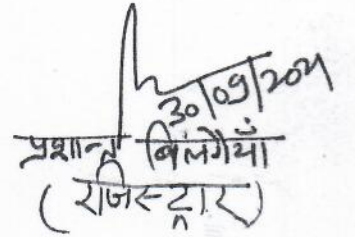 30/09/2021
प्रशान्त बिलगैयाँ
(रजिस्ट्रार)